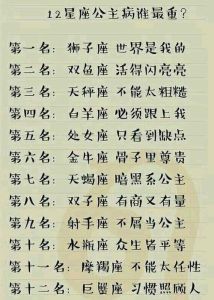 12星座公主病谁最重?
第一名: 狮子座 世界是我的
第二名: 双鱼座 活得闪亮亮
第三名: 天秤座 不能太粗糙
第四名: 白羊座 必须跟上我
第五名: 处女座 只看到缺点
第六名: 金牛座 骨子里尊贵
第七名: 天蝎座 暗黑系公主
第八名: 双子座 有商又有量
第九名: 射手座 不屑当公主
第十名: 水瓶座 众生皆平等
第十一名: 摩羯座 不能太任性
第十二名: 巨蟹座 习惯照顾人